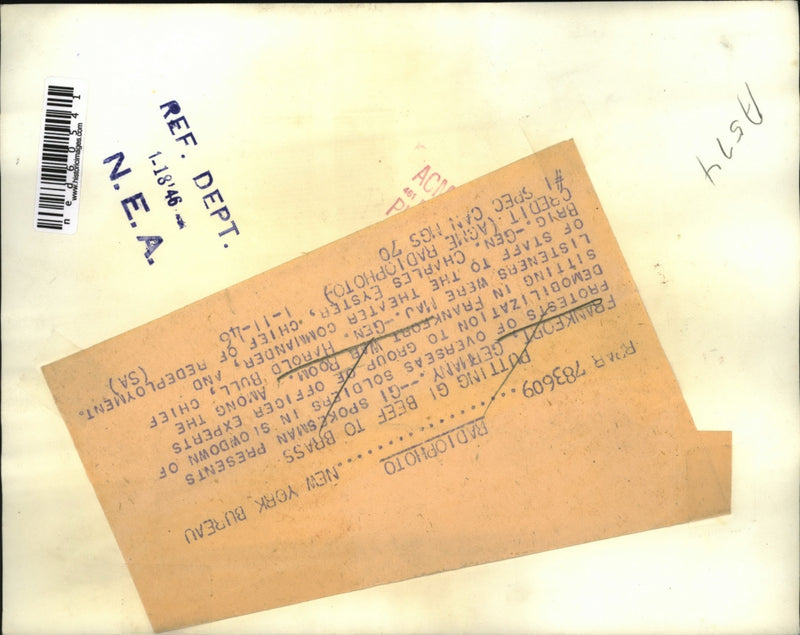 ned60541
www.historicimages.com
REF. DEPT.
1-18'46
N.E.A.
A574
ACM
461
RADIOPHOTO
783609.................NEW YORK BUREAU
PUTTING GI BEEF TO BRASS
FRANKFORT, GERMANY---GI SPOKESMAN PRESENTS
PROTESTS OF OVERSEAS SOLDIERS IN SLOWDOWN OF
DEMOBILIZATION TO GROUP OF OFFICER EXPERTS
SITTING IN FRANKFORT WAR ROOM. AMONG THE CHIEF
LISTENERS WERE MAJ.-GEN. HAROLD BULL, CHIEF
OF STAFF TO THE THEATER COMMANDER, AND
BRIG.-GEN. CHARLES EYSTER, CHIEF OF REDEPLOYMENT.
CREDIT (ACME RADIOPHOTO) 1-11-46 (SA)
#1 SPEC CAN NGS 70